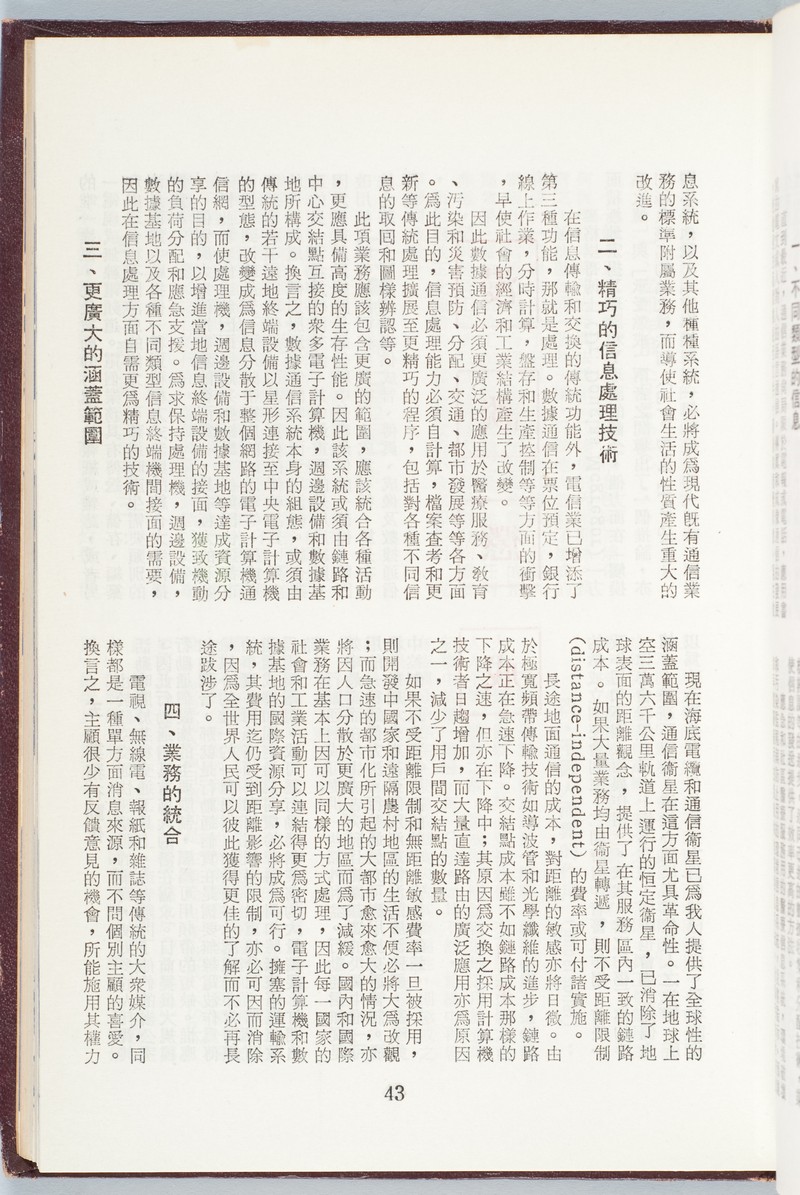 息系統，以及其他種種系統，必將成為現代既有通信業
務的標準附屬業務，而導使社會生活的性質產生重大的
改進。
二、精巧的信息處理技術
在信息傳輸和交換的傳統功能外，電信業已增添了
第三種功能，那就是處理。數據通信在票位預定，銀行
線上作業，分時計算，盤存和生產控制等等方面的衝擊
，早使社會的經濟和工業結構產生了改變。
因此數據通信必須更廣泛的應用於醫療服務、教育
、污染和災害預防、分配、交通、都市發展等等各方面
。為此目的，信息處理能力必須自計算，檔案查考和更
新等傳統處理擴展至更精巧的程序，包括對各種不同信
息的取回和圖樣辨認等。
此項業務應該包含更廣的範圍，應該統合各種活動
，更應具備高度的生存性能。因此該系統或須由鏈路和
中心交結點互接的眾多電子計算機，週邊設備和數據基
地所構成。換言之，數據通信系統本身的組態，或須由
傳統的若干遠地終端設備以星形連接至中央電子計算機
的型態，改變成為信息分散于整個網路的電子計算機通
信網，而使處理機，週邊設備和數據基地等達成資源分
享的目的，以增進當地信息終端設備的接面，獲致機動
的負荷分配和應急支援。為求保持處理機，週邊設備，
數據基地以及各種不同類型信息終端機間接面的需要，
因此在信息處理方面自需更為精巧的技術。
三、更廣大的涵蓋範圍
現在海底電纜和通信衛星已為我人提供了全球性的
涵蓋範圍，通信衛星在這方面尤具革命性。一在地球上
空三萬六千公里軌道上運行的恒定衞星，已消除了地
球表面的距離觀念，提供了在其服務區內一致的鏈路
成本。如果大量業務均由衞星轉遞，則不受距離限制
(distance-independent) 的費率或可付諸實施。
長途地面通信的成本，對距離的敏感亦將日微。由
於極寬頻帶傳輸技術如導波管和光學纖維的進步，鏈路
成本正在急速下降。交結點成本雖不如鏈路成本那樣的
下降之速，但亦在下降中；其原因為交換之採用計算機
技術者日趨增加，而大量直達路由的廣泛應用亦為原因
之一，減少了用戶間交結點的數量。
如果不受距離限制和無距離敏感費率一旦被採用，
則開發中國家和遠隔農村地區的生活不便必將大為改觀
；而急速的都市化所引起的大都市愈來愈大的情況，亦
將因人口分散於更廣大的地區而為了減緩。國內和國際
業務在基本上因可以同樣的方式處理，因此每一國家的
社會和工業活動可以連結得更為密切，電子計算機和數
據基地的國際資源分享，必將成為可行。擁塞的運輸系
統，其費用迄仍受到距離影響的限制，亦必可因而消除
，因為全世界人民可以彼此獲得更佳的了解而不必再長
途跋涉了。
四、業務的統合
電視、無線電、報紙和雜誌等傳統的大衆媒介，同
樣都是一種單方面消息來源，而不問個別主顧的喜愛。
換言之，主顧很少有反饋意見的機會，所能施用其權力
43